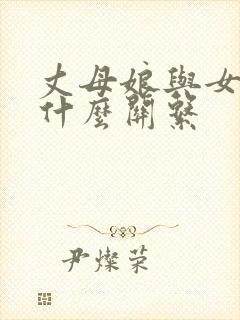 丈母娘與女
什麼關繫
尹燦荣